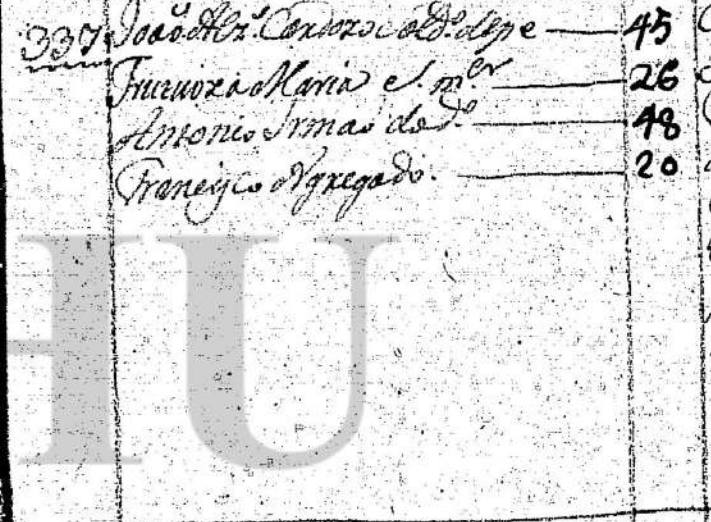 337 João Alz.' Cardozo Sold.º de pe — 45
Frutuoza Maria s. m.er — 26
Antonio Irmaõ do d.º — 48
Francisco Agregado. — 20
HU